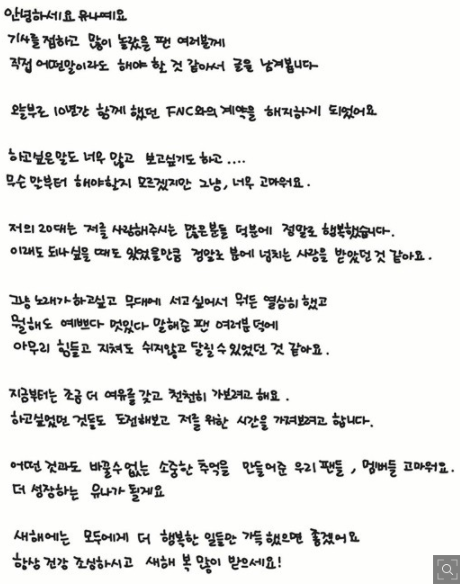 안녕하세요 유나예요
기사를 접하고 많이 놀랐을 팬 여러분께
직접 어떤말이라도 해야 할 것 같아서 글을 남겨봅니다
오늘부로 10년간 함께 했던 FNC와의 계약을 해지하게 되었어요
하고싶은말도 너무 많고 보고싶기도 하고 ....
무슨 말부터 해야할지 모르겠지만 그냥, 너무 고마워요.
저의 20대는 저를 사랑해주시는 많은분들 덕분에 정말로 행복했습니다.
이래도 되나싶을 때도 있었을만큼 정말로 분에 넘치는 사랑을 받았던 것 같아요.
그냥 노래가 하고싶고 무대에 서고 싶어서 뭐든 열심히 했고
뭘해도 예쁘다 멋있다 말해준 팬 여러분덕에
아무리 힘들고 지쳐도 쉬지않고 달릴 수 있었던 것 같아요.
지금부터는 조금 더 여유를 갖고 천천히 가보려고 해요.
하고싶었던 것들도 도전해보고 저를 위한 시간을 가져보려고 합니다.
어떤 것과도 바꿀수 없는 소중한 추억을 만들어준 우리 팬들, 멤버들 고마워요.
더 성장하는 유나가 될게요
새해에는 모두에게 더 행복한 일들만 가득했으면 좋겠어요
항상 건강 조심하시고 새해 복 많이 받으세요!